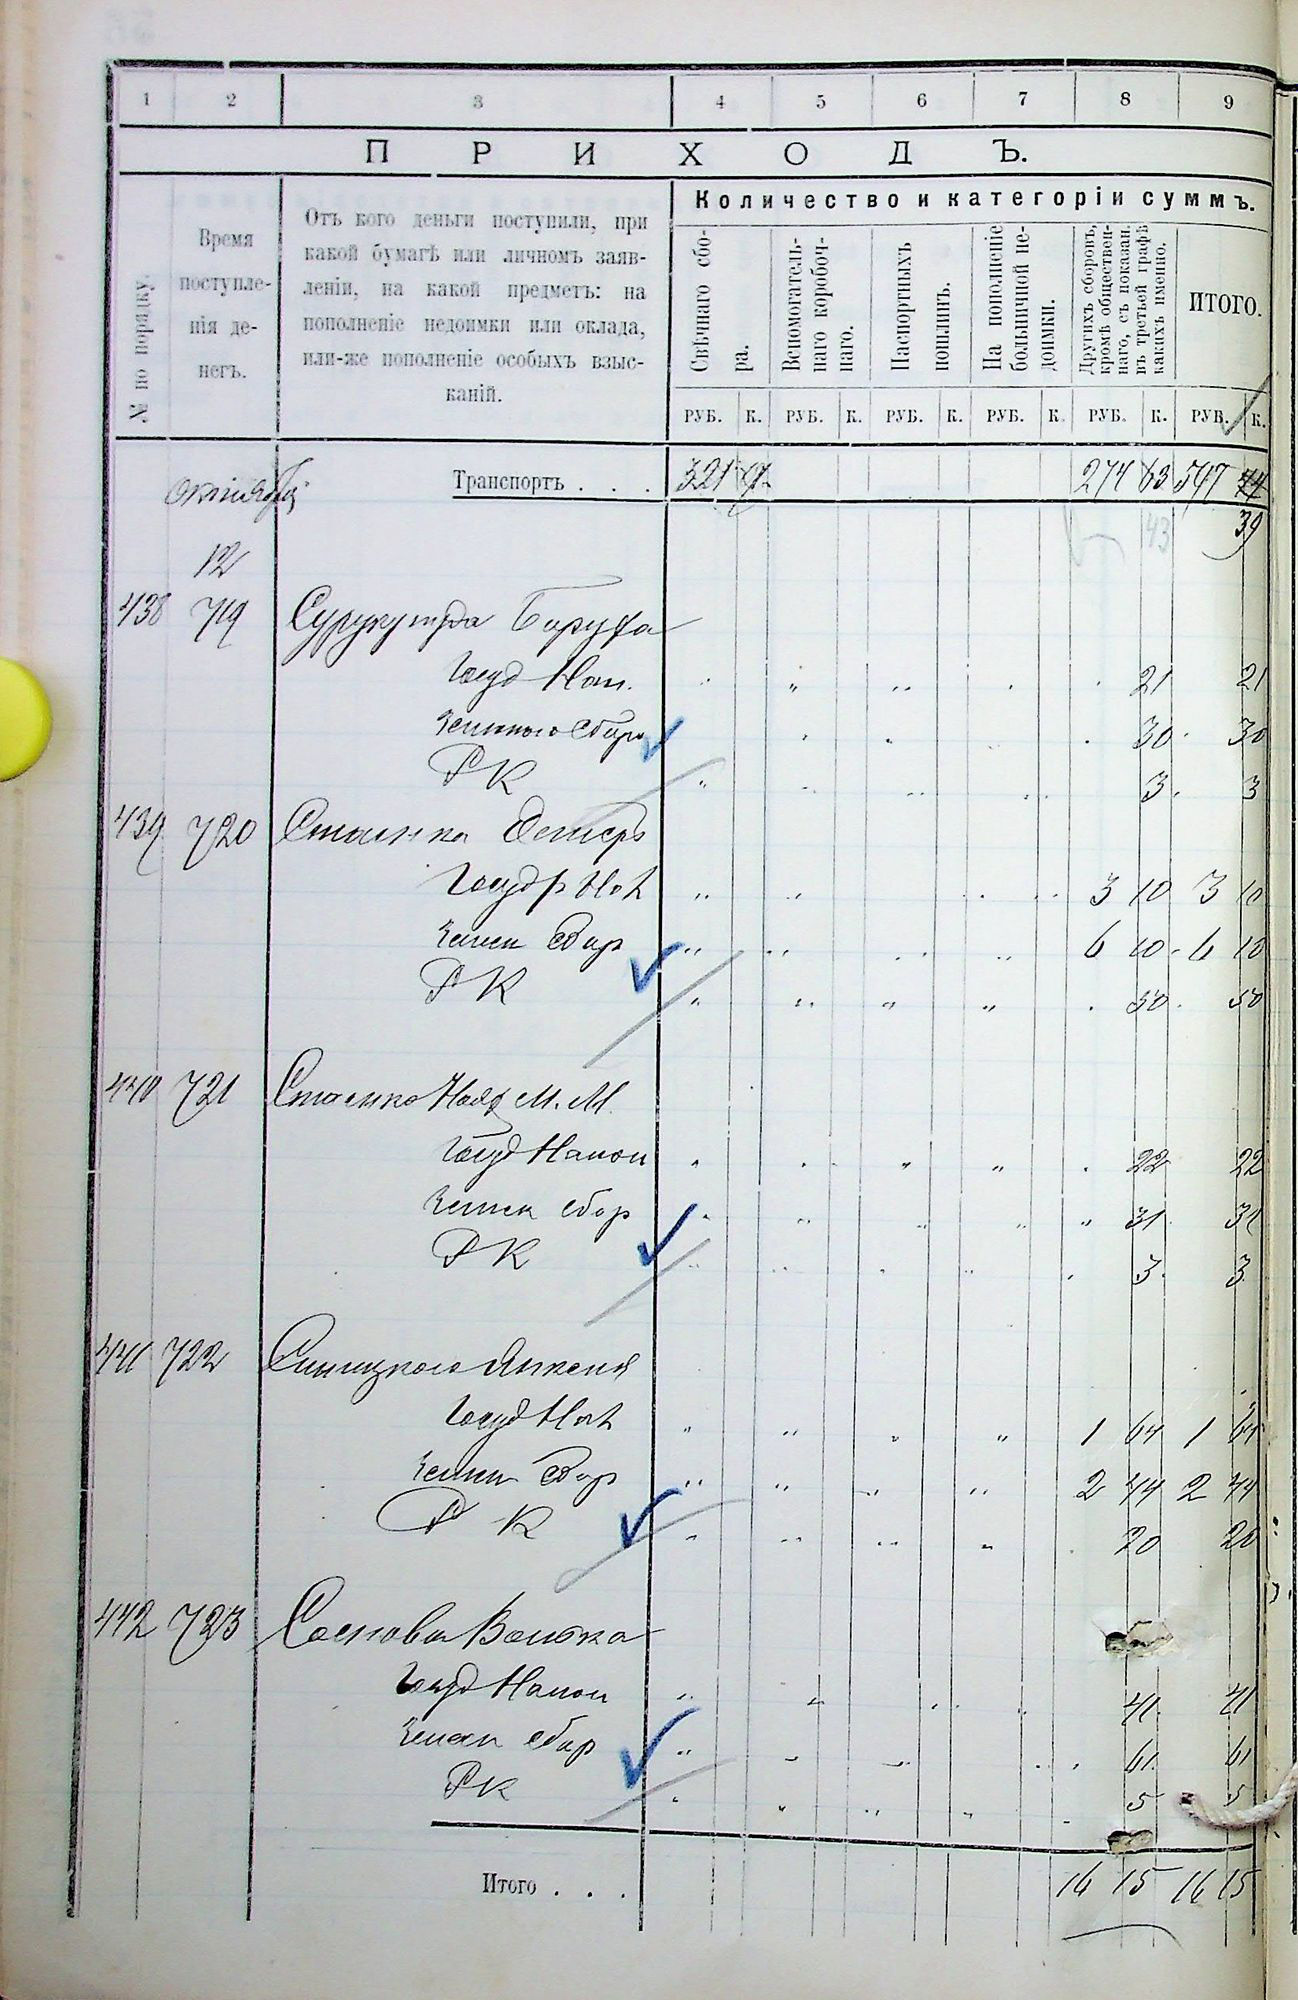 1 2 3 4 5 6 7 8 9
ПРИХОДЪ.
№ по порядку.
Время поступле-
нія де-
негъ.
Отъ кого деньги поступили, при
какой бумагѣ или личномъ заяв-
леніи, на какой предметъ: на
пополненіе недоимки или оклада,
или-же пополненіе особыхъ взыс-
каній.
Количество и категоріи суммъ.
Свѣчнаго сбо-
ра.
Вспомогатель-
наго коробоч-
наго.
Паспортныхъ
пошлинъ.
На пополненіе
больничной не-
доимки.
Другихъ сборовъ,
кромѣ обществен-
наго, съ показан.
въ третьей графѣ
какихъ именно.
ИТОГО.
РУБ. К. РУБ. К. РУБ. К. РУБ. К. РУБ. К. РУБ. К.
октября Транспортъ . . . 321 274 63 547 44
43 39
12
438 719 Баруха
Госуд Нал. 21 21
Земскаго сбора 30 30
РК 3 3
439 720
Госудр Нал 3 10 3 10
Земск Сбор 6 10 6 10
РК 50 50
440 721 М. М.
Госуд Налог 22 22
Земск сбор 31 31
РК 3 3
441 722 Синицкого Янкеля
Госуд Нал 1 64 1 64
Земск Сбор 2 44 2 44
РК 20 20
442 723 Соснова Волька
Госуд Налог 41 41
Земск сбор 61 61
РК 5 5
Итого . . . 16 15 16 15